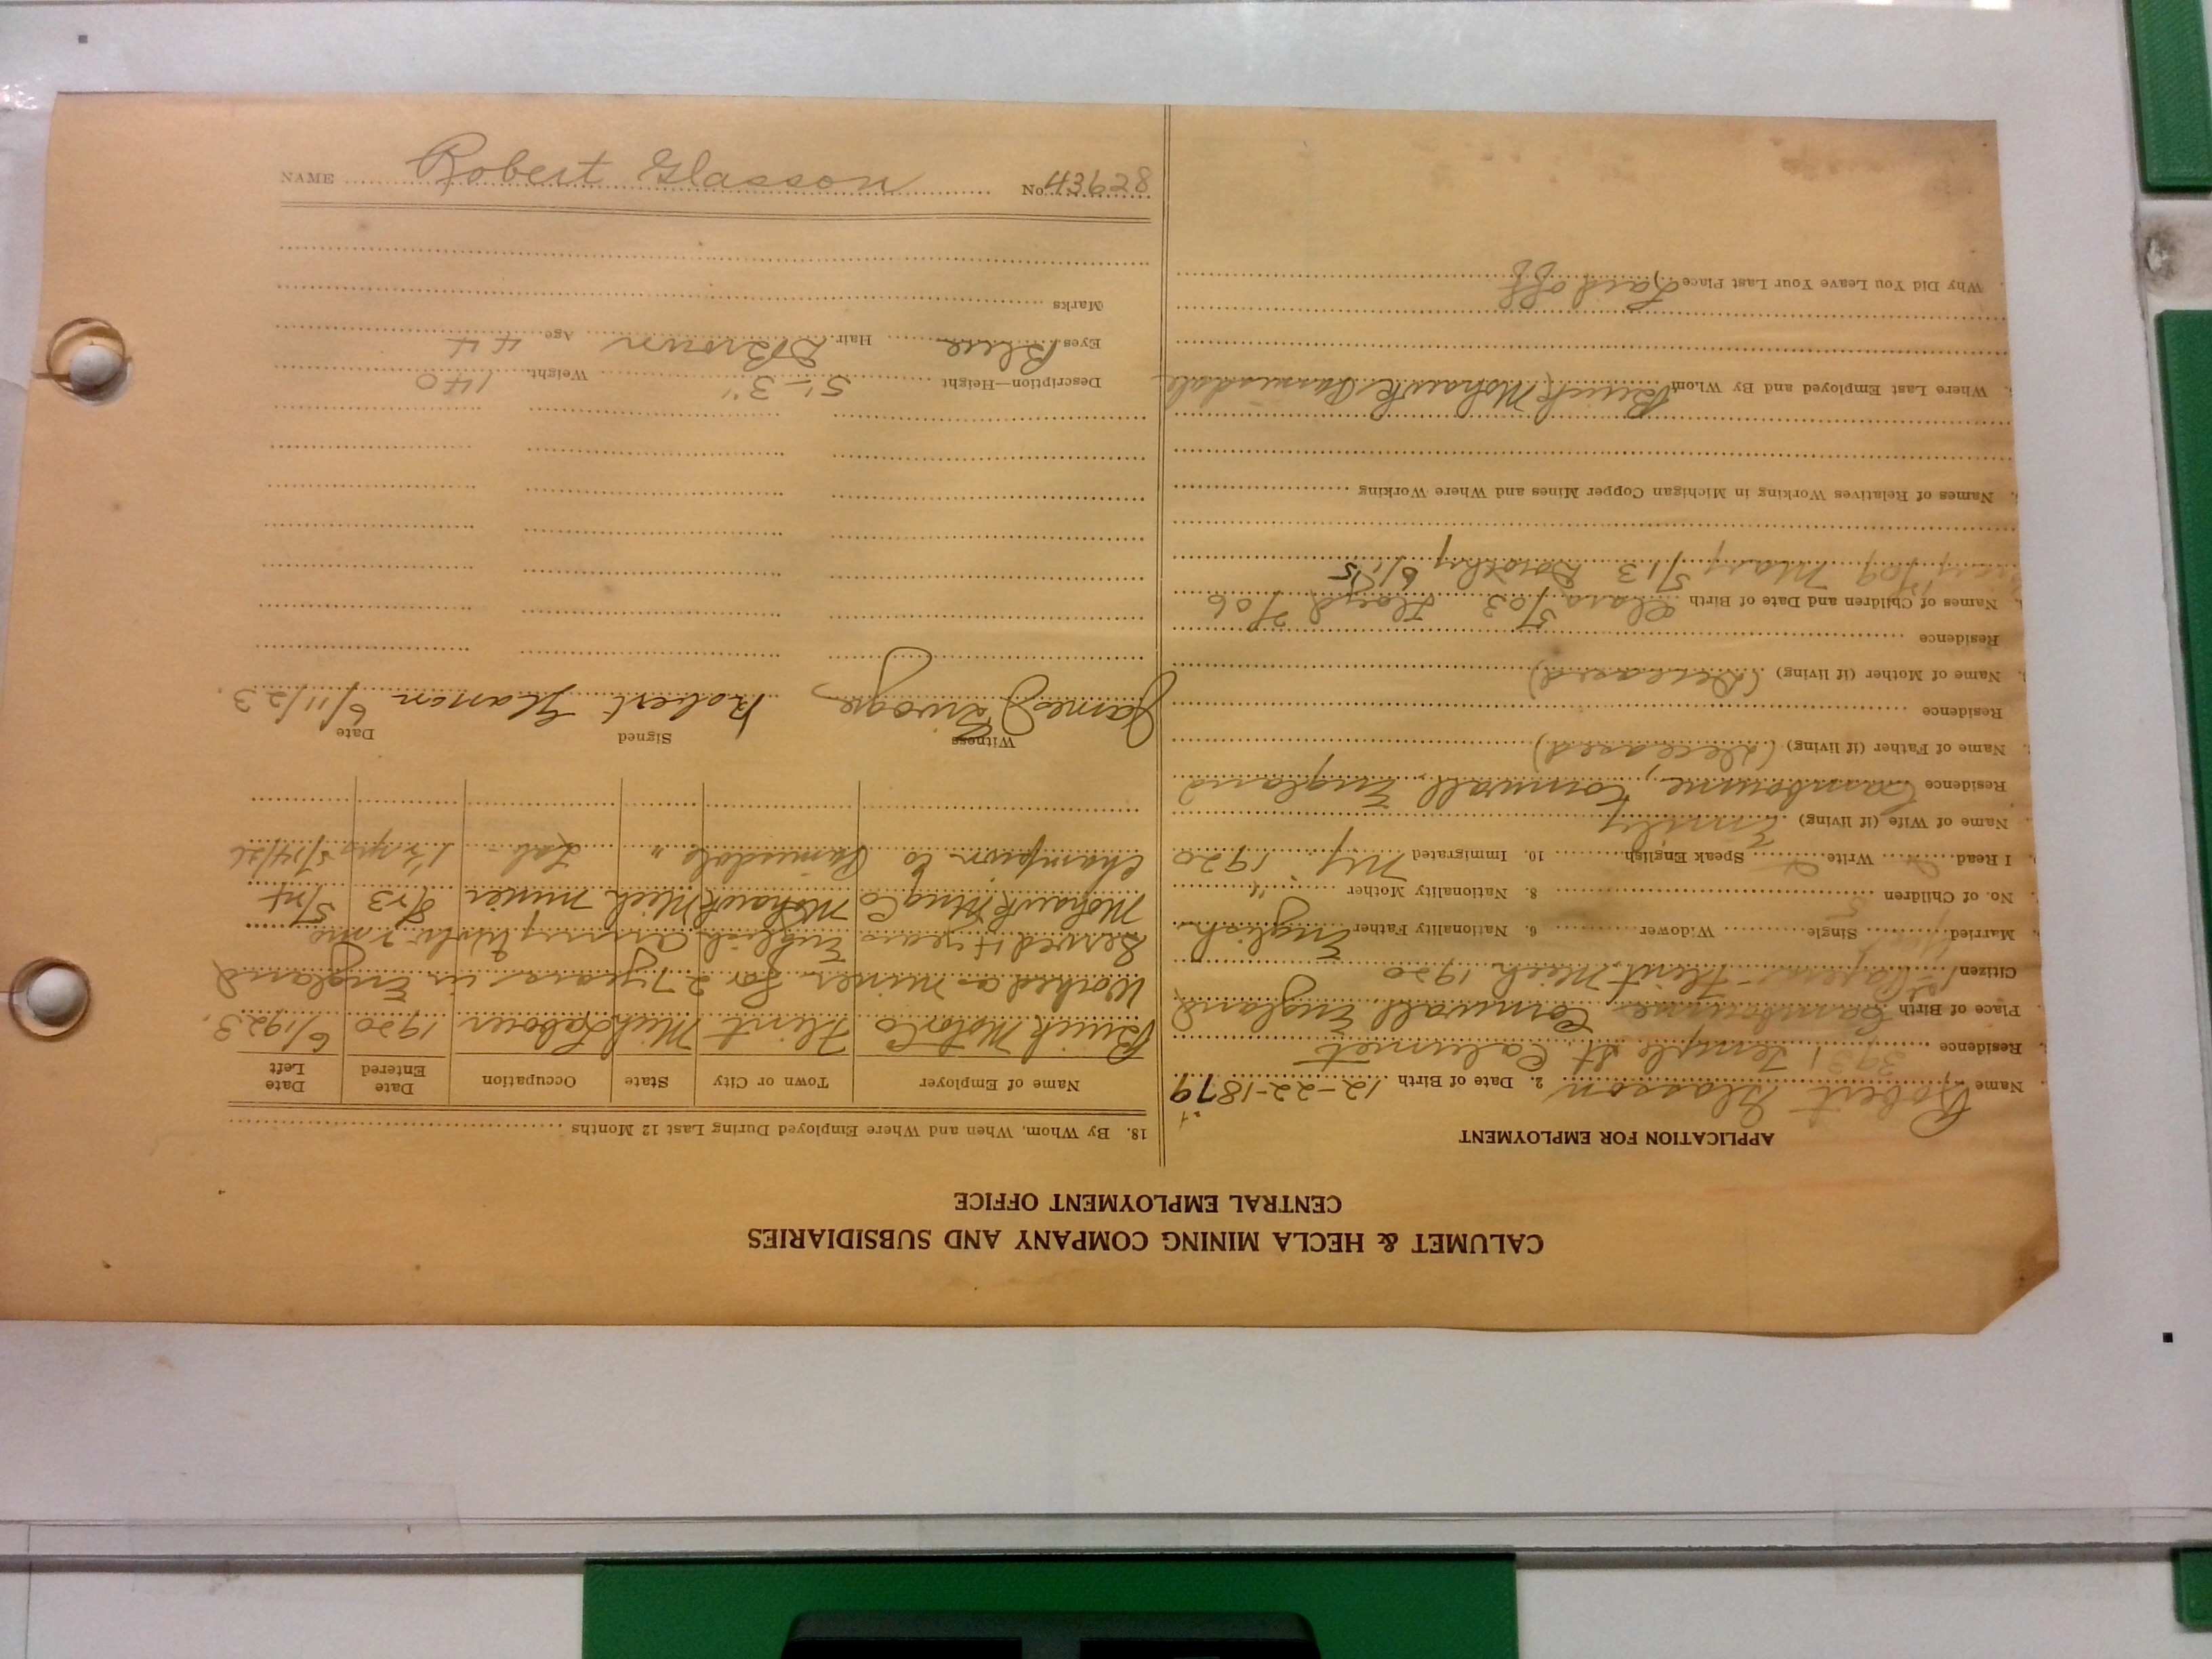 CALUMET & HECLA MINING COMPANY AND SUBSIDIARIES
CENTRAL EMPLOYMENT OFFICE
APPLICATION FOR EMPLOYMENT
Name Robert Glasson 2. Date of Birth 12-22-1879
Residence 3931 Temple St Calumet
Place of Birth Cambourne, Cornwall England
Citizen 1st Papers - Flint Mich 1920
Married Single Widower 6. Nationality Father English
No. of Children 5 8. Nationality Mother "
I Read Write Speak English 10. Immigrated NY. 1920
Name of Wife (if living) Emily
Residence Cambourne, Cornwall England
Name of Father (if living) (deceased)
Residence
Name of Mother (if living) (deceased)
Residence
Names of Children and Date of Birth Clara 5/03 Floyd 2/06
Mary 5/13 Dorothy 6/15
Names of Relatives Working in Michigan Copper Mines and Where Working
Where Last Employed and By Whom Buick Mohawk Painesdale
Why Did You Leave Your Last Place Laid off
18. By Whom, When and Where Employed During Last 12 Months
Name of Employer Town or City State Occupation Date Entered Date Left
Buick Motor Co Flint Mich Laborer 1920 6/1923.
Worked as miner for 27 years in England
Served 4 years English Army
Mohawk Mng Co Mohawk Mich miner
Champion Co Painesdale " Lab- 5/14/26
Witness Signed Date
James Robert Glasson 6/11/23.
Description—Height 5'-3" Weight 140
Eyes Blue Hair D Brown Age 44
Marks
NAME Robert Glasson No. 43628